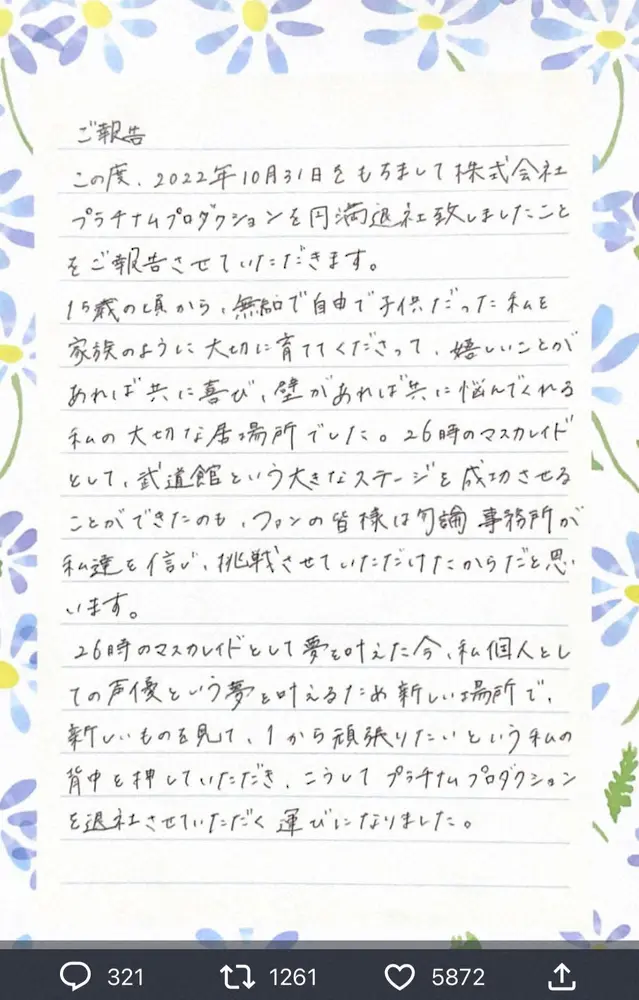 ご報告
この度、2022年10月31日をもちまして株式会社
プラチナムプロダクションを円満退社致しましたこと
をご報告させていただきます。
15歳の頃から、無知で自由で子供だった私を
家族のように大切に育ててくださって、嬉しいことが
あれば共に喜び、壁があれば共に悩んでくれる
私の大切な居場所でした。26時のマスカレイド
として、武道館という大きなステージを成功させる
ことができたのも、ファンの皆様は勿論事務所が
私達を信じ、挑戦させていただけたからだと思
います。
26時のマスカレイドとして夢を叶えた今、私個人とし
ての声優という夢を叶えるため新しい場所で、
新しいものを見て、1から頑張りたいという私の
背中を押していただき、こうしてプラチナムプロダクション
を退社させていただく運びになりました。
321 1261 5872